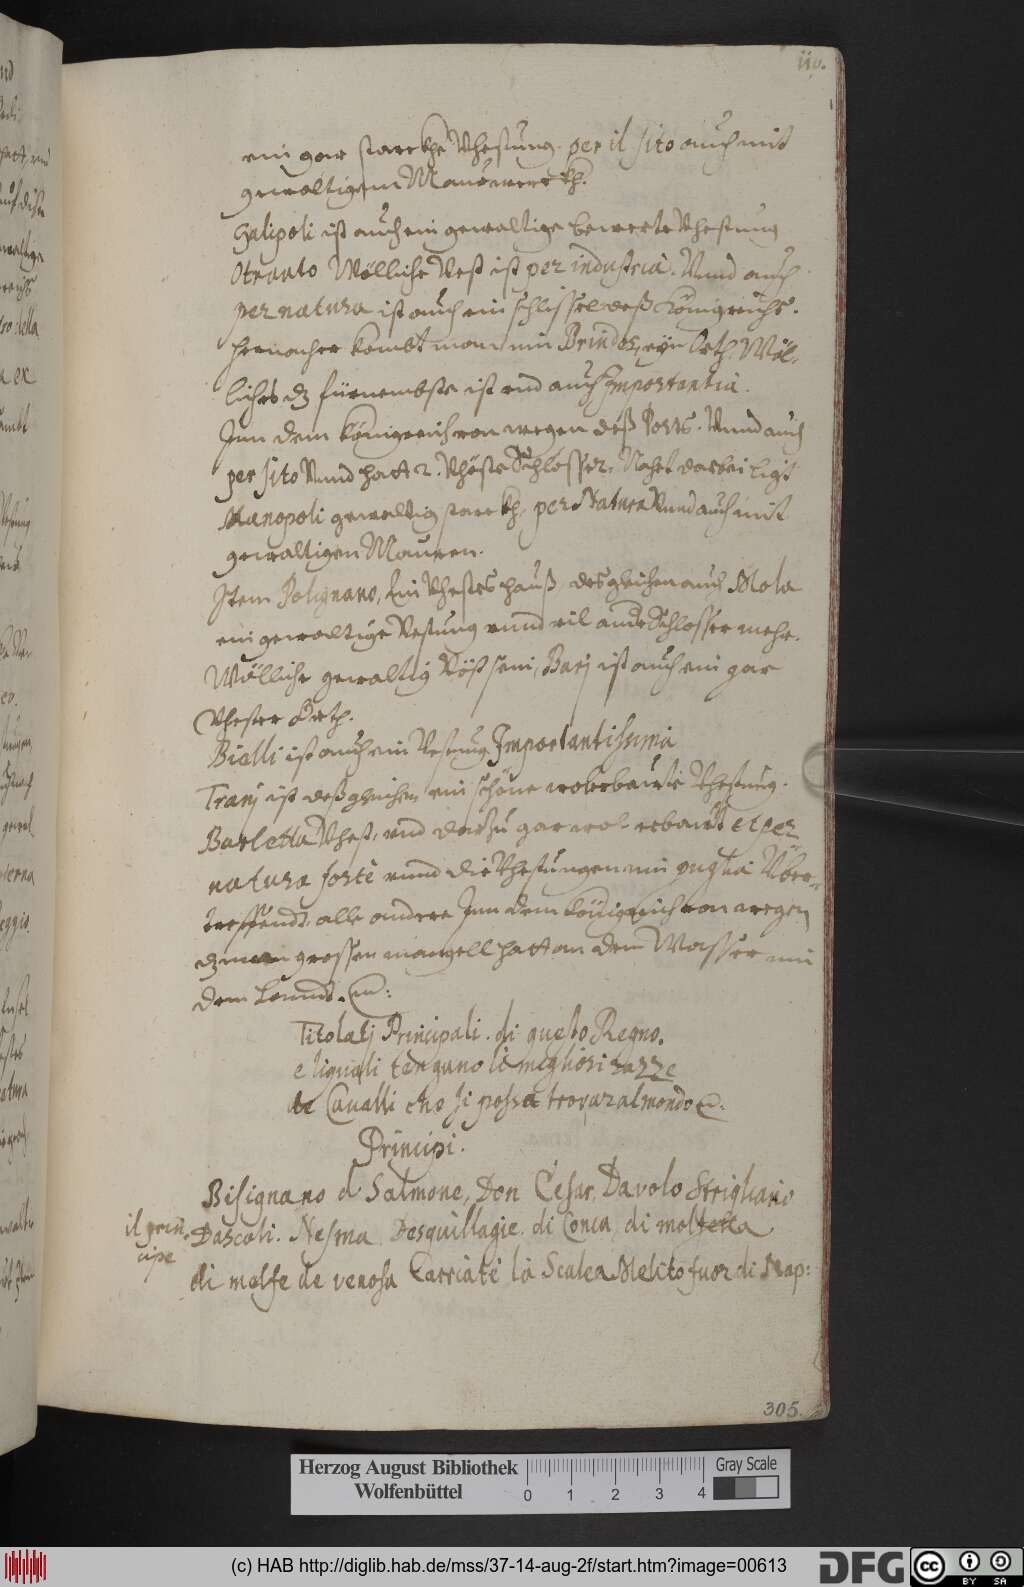 110.
ein gar starckhe Vhestung. per il sito auch mit
gewaltigem Maurwerckh.
Galipoli ist auch ein gewaltige bewerte Vhestung
Otranto Wölliche Vest ist per industria. Vnnd auch
per natura ist auch ein schlissel deß Königreichs.
hernacher kombt man inn Brindes, eyn Orth, Wöl-
liches dz fürnembste ist vnd auch Importantia.
Jnn dem Königreich von wegen deß Ports. Vnnd auch
per sito Vnnd hatt 2. Vhöste Schlösser. Nahet darbei ligt
Manopoli gewaltig starckh, per Natura Vnnd auch mit
gewaltigen Mauren.
Jtem Polignano, Ein Vhestes hauß, desgleichen auch Mola
ein gewaltige Vestung vnnd vil andre Schlösser mehr.
Wölliche gewaltig Vöst sein, Barj ist auch ein gar
Vhester Orth.
Bialli ist auch ein Vestung Importantissima
Tranj ist deßgleichen ein schöne wolerbaute Vhestung.
Barletta Vhest, vnd darzu gar wol erbaut et per
natura forte vnnd die Vhestungen inn puglia Vber-
treffendt, alle andere Jnn dem Königreich von wegen
dz man grossen mangell hatt an dem Wasser inn
dem Lanndt.
Titolatj Principali. di questo Regno.
e liquali tengano la migliori razze
de Cavalli che si possa trovar al mondo
Principi.
Bisignano d Salmone, Don Cesar Davolo Strigliano
il prin-
cipe
Dascoli. Nesma. Desquillagie. di Conca, di molfetta
di melfe de venosa Carriati la Scalea Melito fuor di Nap:
305.
Herzog August Bibliothek
Wolfenbüttel
0 1 2 3 4
Gray Scale
(c) HAB http://diglib.hab.de/mss/37-14-aug-2f/start.htm?image=00613
DFG
cc BY SA